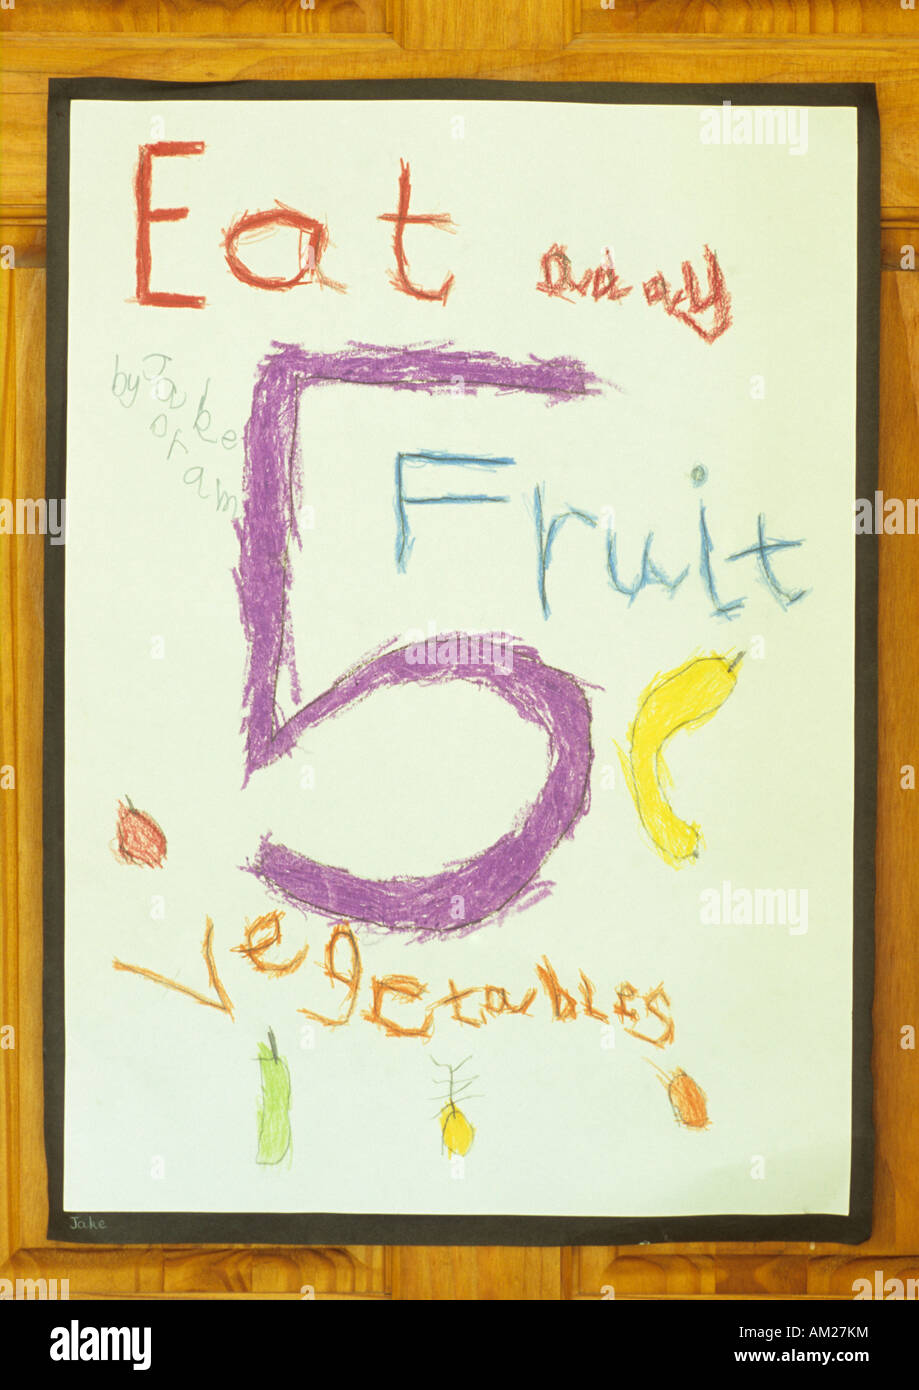 Eat
5
by Jake
Fruit
Vegetables
Jake
alamy
alamy
alamy
Image ID: AM27KM
www.alamy.com